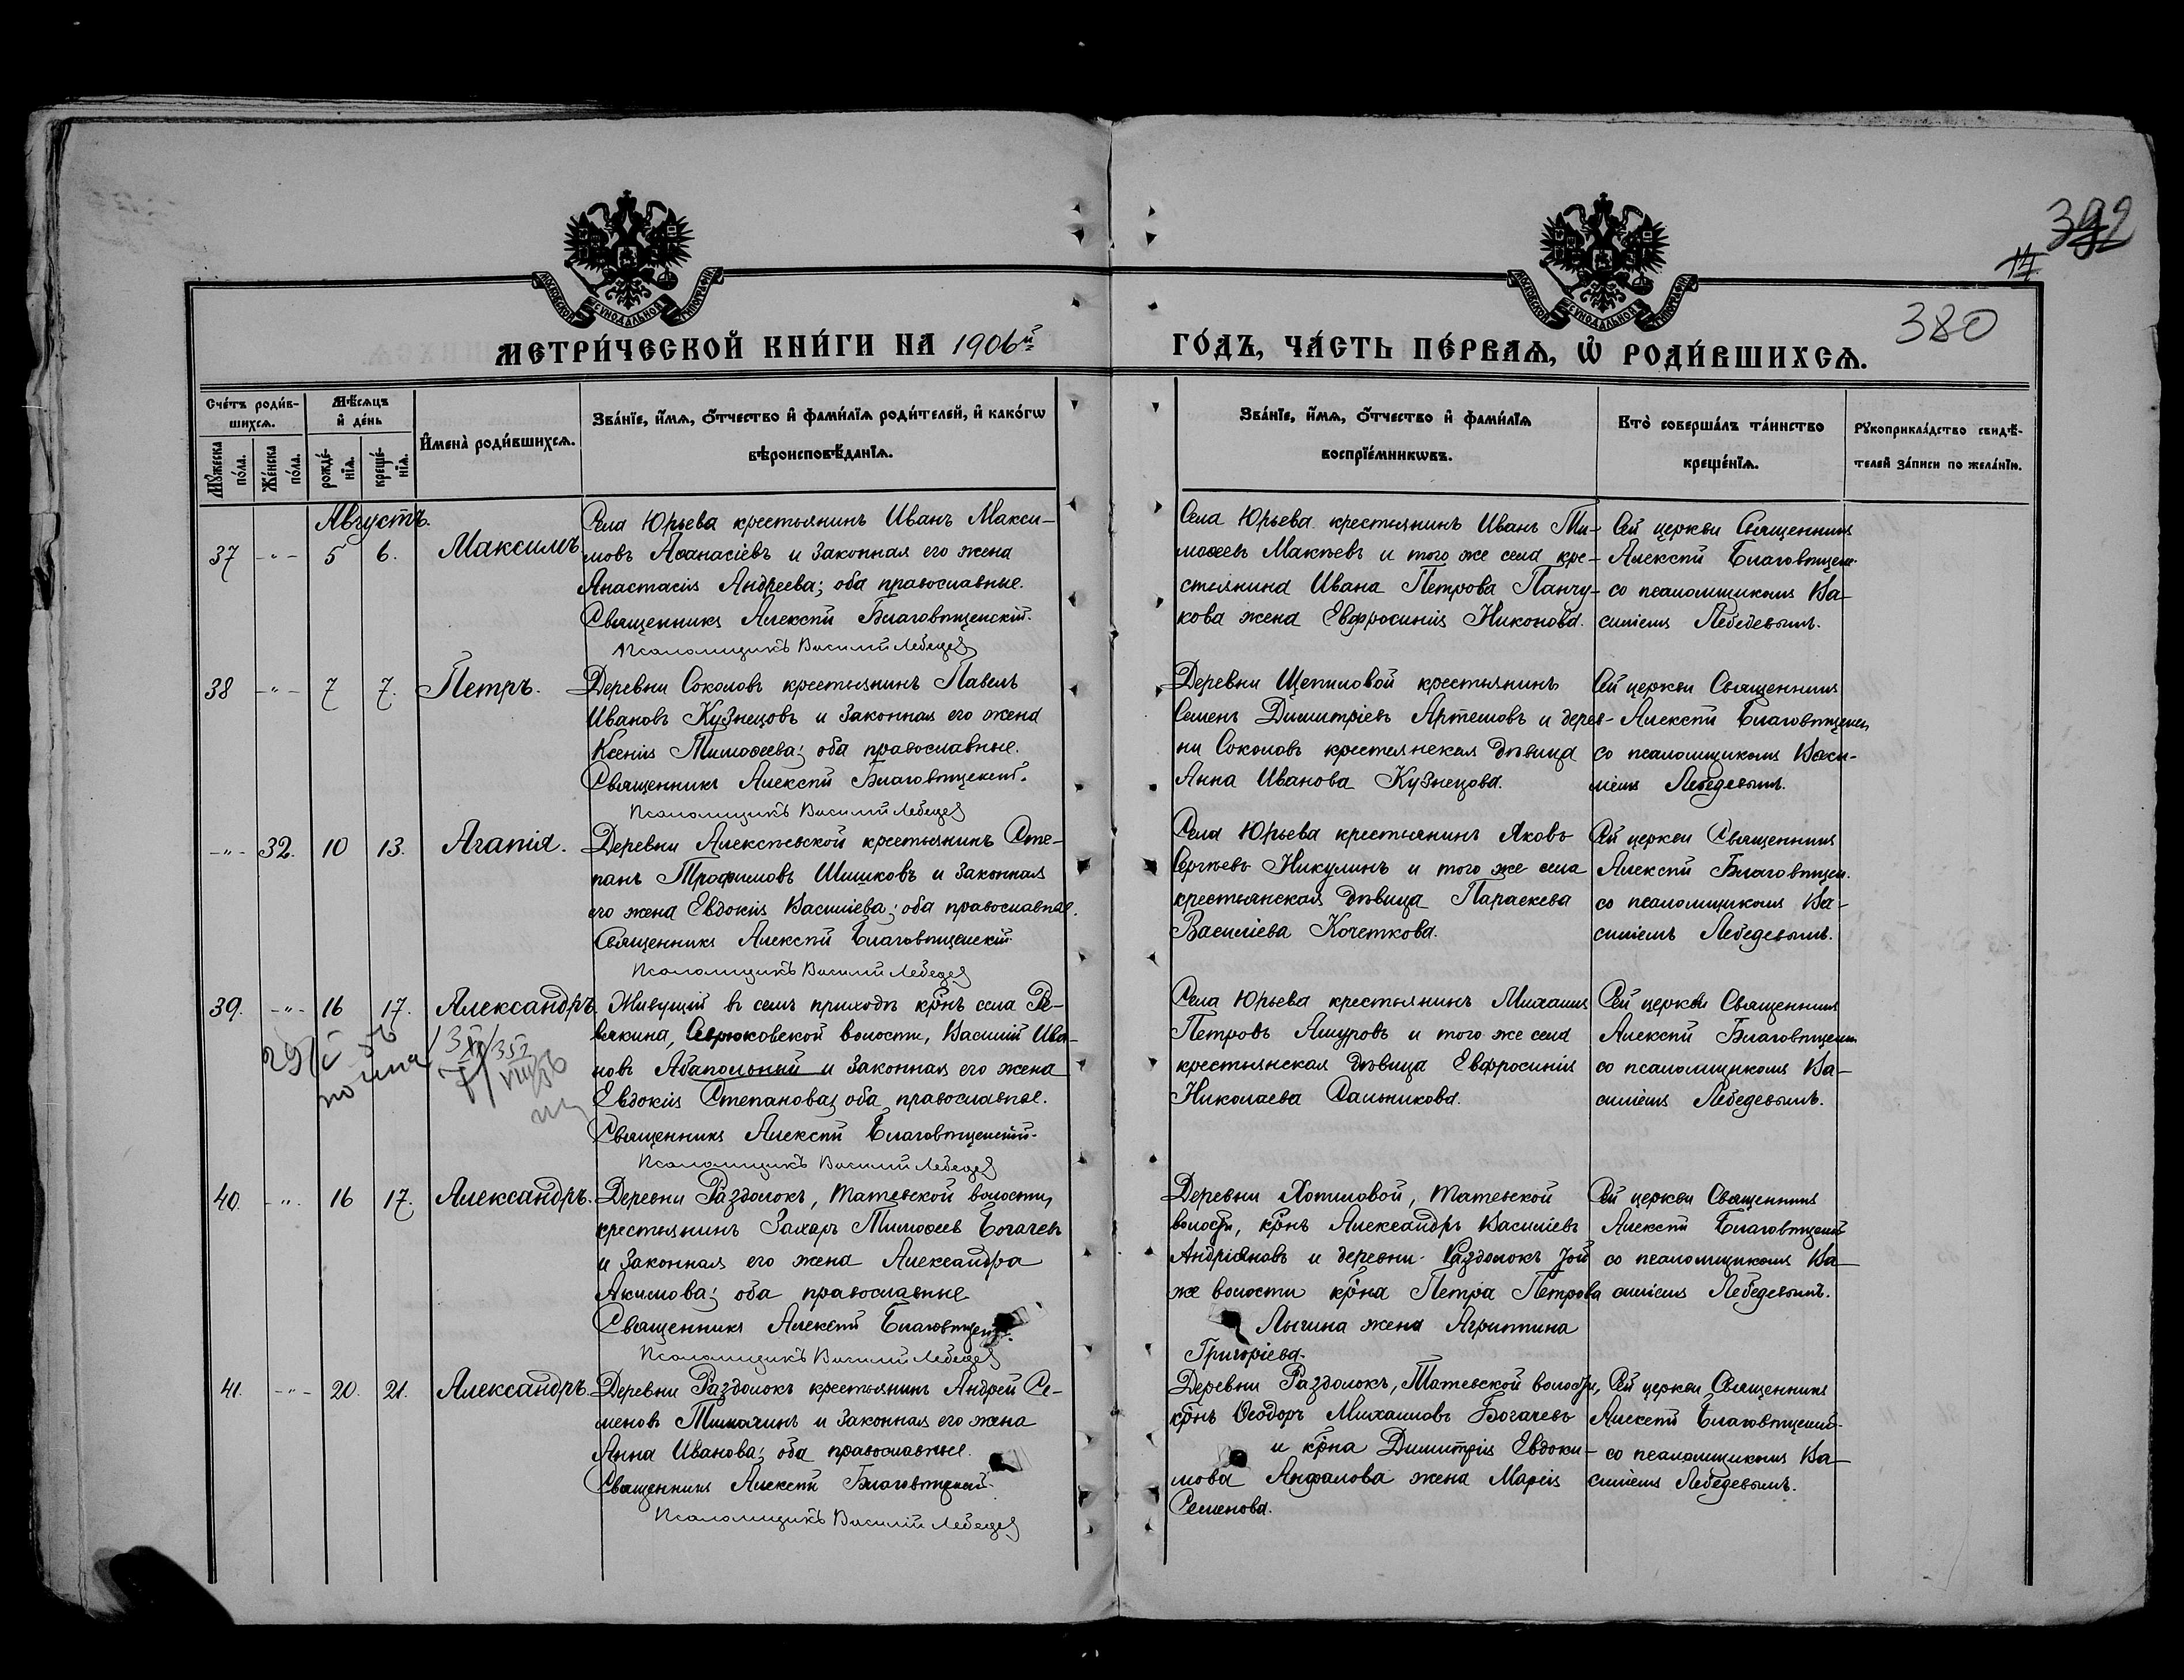 392
14
380
МОСКОВСКОЙ СѴНОДАЛЬНОЙ ТИПОГРАФІИ
МОСКОВСКОЙ СѴНОДАЛЬНОЙ ТИПОГРАФІИ
МЕТРИ́ЧЕСКОЙ КНИ́ГИ НА 1906й
ГО́ДЪ, ЧА́СТЬ ПЕ́РВАѦ, Ѡ҆ РОДИ́ВШИХСѦ.
Сче́тъ роди́в-
шихсѧ.
Мꙋжеска по́ла.
Же́нска по́ла.
Мѣ́сѧцъ
и҆ де́нь
рожде́-нїѧ.
креще́-нїѧ.
И҆мена̀ роди́вшихсѧ.
Зва́нїе, и҆́мѧ, ѻ҆́тчество и҆ фами́лїѧ роди́телей, и҆ како́гѡ
вѣроисповѣ́данїѧ.
Зва́нїе, и҆́мѧ, ѻ҆́тчество и҆ фами́лїѧ
воспрїе́мникѡвъ.
Кто̀ соверша́лъ та́инство
креще́нїѧ.
Рꙋкоприкла́дство свидѣ́-
телей за́писи по жела́нїю.
Августъ.
37 -"- 5 6. Максимъ
Села Юрьева крестьянинъ Иванъ Макси-
мовъ Аѳанасіевъ и законная его жена
Анастасія Андреева; оба православные.
Священникъ Алексій Благовѣщенскій.
Псаломщикъ Василій Лебедев
Села Юрьева крестьянинъ Иванъ Ти-
моѳеевъ Макѣевъ и того же села кре-
стьянина Ивана Петрова Панчу-
кова жена Евфросинія Никонова.
Сей церкви Священникъ
Алексій Благовѣщен.
со псаломщикомъ Ва-
силіемъ Лебедевымъ.
38 -"- 7 7. Петръ.
Деревни Соколовъ крестьянинъ Павелъ
Ивановъ Кузнецовъ и законная его жена
Ксенія Тимоѳеева; оба православные.
Священникъ Алексій Благовѣщенскій.
Псаломщикъ Василій Лебедев
Деревни Щепиловой крестьянинъ
Семенъ Димитріевъ Артемовъ и дерев-
ни Соколовъ крестьянская дѣвица
Анна Иванова Кузнецова.
Сей церкви Священникъ
Алексій Благовѣщенск
со псаломщикомъ Васи-
ліемъ Лебедевымъ.
-"- 32. 10 13. Агапія.
Деревни Алексѣевской крестьянинъ Сте-
панъ Трофимовъ Шишковъ и законная
его жена Евдокія Василіева; оба православные.
Священникъ Алексій Благовѣщенскій.
Псаломщикъ Василій Лебедев
Села Юрьева крестьянинъ Яковъ
Сергѣевъ Никулинъ и того же села
крестьянская дѣвица Параскева
Василіева Кочеткова.
Сей церкви Священникъ
Алексій Благовѣщен.
со псаломщикомъ Ва-
силіемъ Лебедевымъ.
39. -"- 16 17. Александръ.
Живущій въ семъ приходѣ кр̃нъ села Ре-
вякина, Севрюковской волости, Василій Ива-
новъ Абапольный и законная его жена
Евдокія Степанова; оба православные.
Священникъ Алексій Благовѣщенскій.
Псаломщикъ Василій Лебедев
Села Юрьева крестьянинъ Михаилъ
Петровъ Ашуровъ и того же села
крестьянская дѣвица Евфросинія
Николаева Сальникова.
Сей церкви Священникъ
Алексій Благовѣщен
со псаломщикомъ Ва-
силіемъ Лебедевымъ.
40. -"- 16 17. Александръ.
Деревни Раздолокъ, Татевской волости,
крестьянинъ Захаръ Тимоѳеевъ Богачевъ
и законная его жена Александра
Акимова; оба православные
Священникъ Алексій Благовѣщенск.
Псаломщикъ Василій Лебедев
Деревни Хотиловой, Татевской
волости, кр̃нъ Александръ Василіевъ
Андріяновъ и деревни Раздолокъ той
же волости кр̃на Петра Петрова
Лыгина жена Агриппина
Григоріева.
Сей церкви Священникъ
Алексій Благовѣщенск
со псаломщикомъ Ва-
силіемъ Лебедевымъ.
41. -"- 20. 21. Александръ.
Деревни Раздолокъ крестьянинъ Андрей Се-
меновъ Тимохинъ и законная его жена
Анна Иванова; оба православные.
Священникъ Алексій Благовѣщенскій.
Псаломщикъ Василій Лебедев
Деревни Раздолокъ, Татевской волости,
кр̃нъ Ѳеодоръ Михаиловъ Богачевъ
и кр̃на Димитрія Евдоки-
мова Анфалова жена Марія
Семенова.
Сей церкви Священникъ
Алексій Благовѣщенскій
со псаломщикомъ Ва-
силіемъ Лебедевымъ.